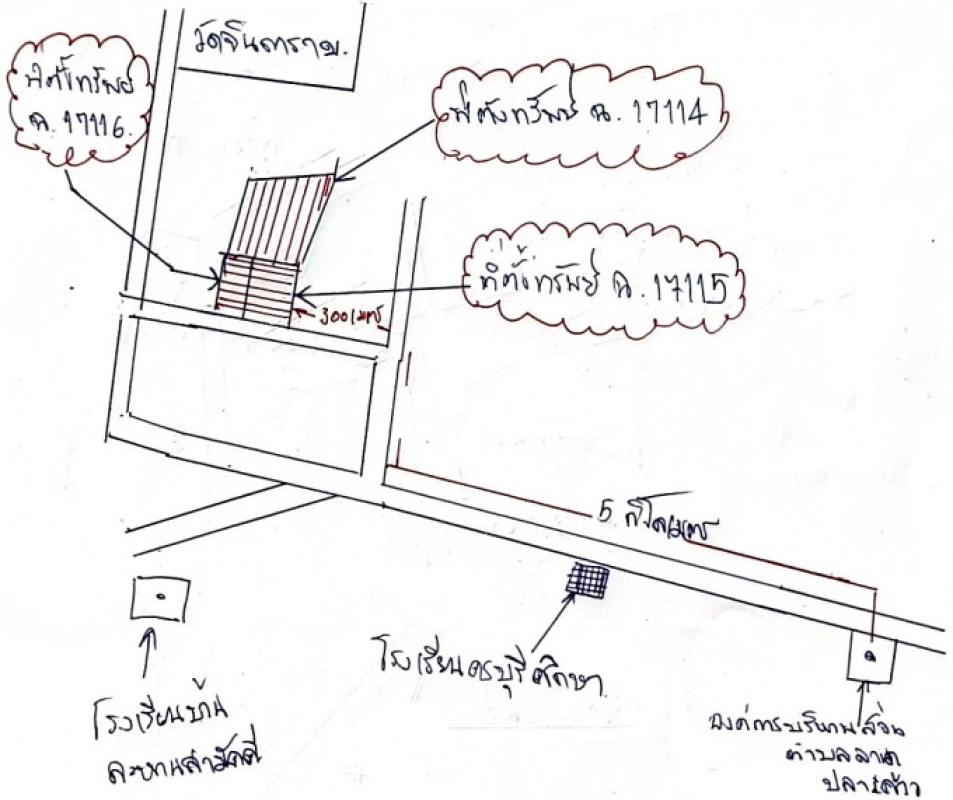 วัดจินดาราม.
ที่ตั้งทรัพย์
ฉ. 17116.
ที่ตั้งทรัพย์ ฉ. 17114
ที่ตั้งทรัพย์ ฉ. 17115
300 เมตร
5 กิโลเมตร
โรงเรียนครบุรีศึกษา
โรงเรียนบ้าน
องค์การบริหารส่วน
ตำบล
ปลาเค้า